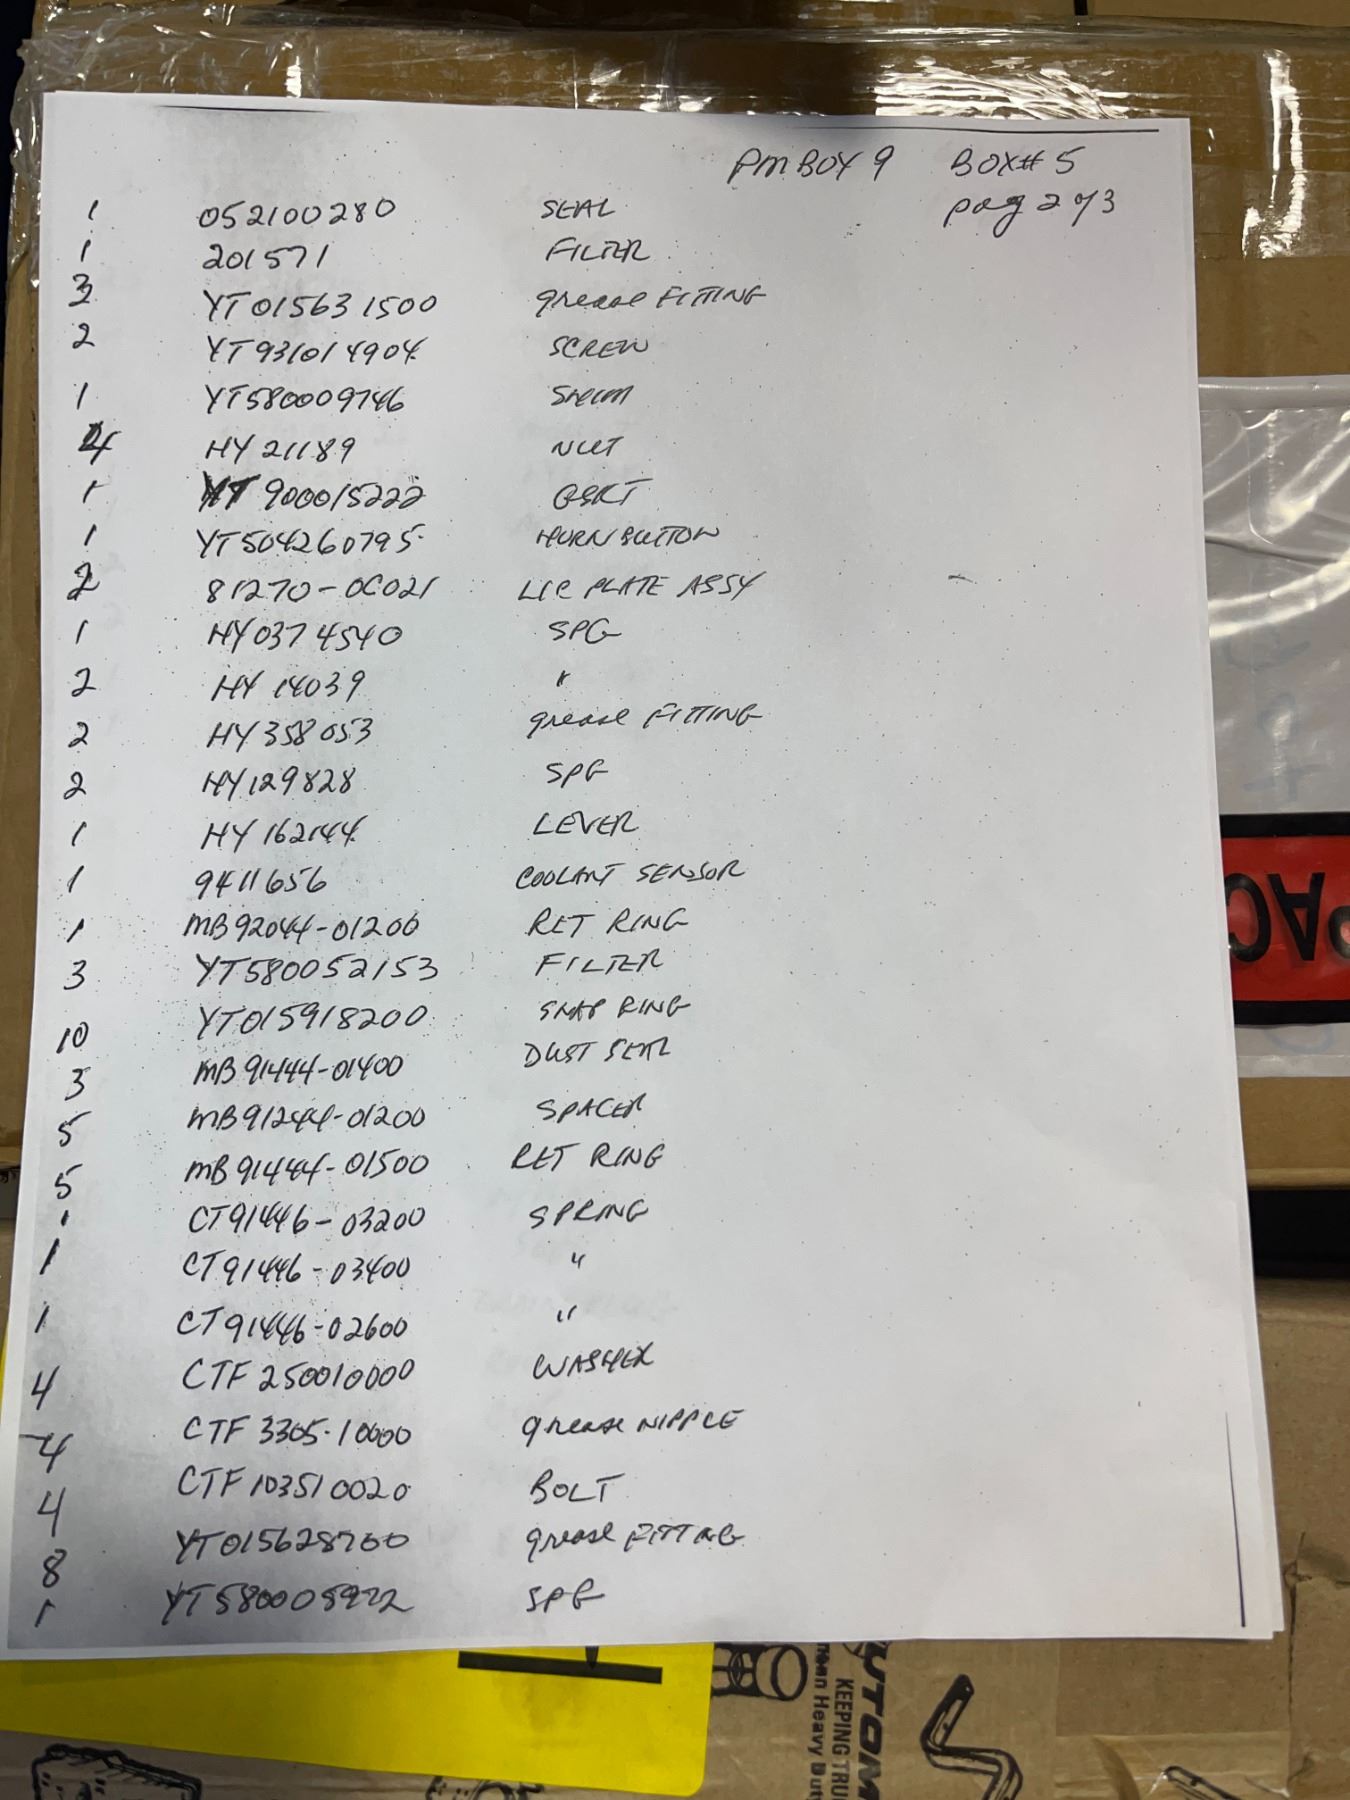 PM BOX 9 BOX# 5
pag 2 of 3
1 052100280 SEAL
1 201571 FILTER
3 YT015631500 grease FITTING
2 YT931014904 SCREW
1 YT580009746 SHIM
4 HY 21189 NUT
1 YT 900015222 GSKT
1 YT504260795 HORN BUTTON
2 81270-0C021 LIC PLATE ASSY
1 HY0374540 SPG
2 HY 14039 "
2 HY 358053 grease FITTING
2 HY129828 SPG
1 HY 162144 LEVER
1 9411656 COOLANT SENSOR
1 MB92044-01200 RET RING
3 YT580052153 FILTER
10 YT015918200 SNAP RING
3 MB91444-01400 DUST SEAL
5 MB91244-01200 SPACER
5 MB91444-01500 RET RING
1 CT91446-03200 SPRING
1 CT91446-03400 "
1 CT91446-02600 "
4 CTF 250010000 WASHER
4 CTF 3305-10000 grease NIPPLE
4 CTF 103510020 BOLT
8 YT015628700 grease FITTING
1 YT580005922 SPG
PAC
UTOM
KEEPING TRU
Heavy Dut